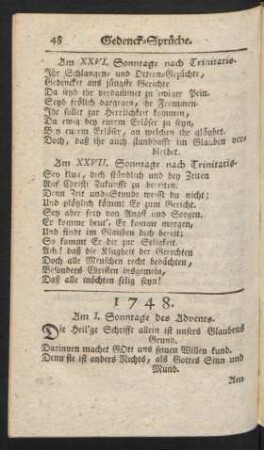 48 Gedenck-Sprüche.
Am XXVI. Sonntage nach Trinitatis.
Ihr Schlangen- und Ottern-Gezüchte,
Gedencket ans jüngste Gerichte
Da seyd ihr verdammet zu ewiger Pein.
Seyd frölich dargegen, ihr Frommen
Ihr sollet zur Herrlichkeit kommen,
Da ewig bey eurem Erlöser zu seyn,
Bey eurem Erlöser, an welchen ihr gläubet.
Doch, daß ihr auch standhafft im Glauben ver-
bleibet.
Am XXVII. Sonntage nach Trinitatis.
Sey klug, dich stündlich und bey Zeiten
Auf Christi Zukunfft zu bereiten.
Denn Zeit und Stunde weißt du nicht;
Und plötzlich kömmt Er zum Gericht.
Sey aber frey von Angst und Sorgen.
Er komme heut', Er komme morgen,
Und finde im Glauben dich bereit;
So kommt Er dir zur Seligkeit.
Ach! daß die Klugheit der Gerechten
Doch alle Menschen recht bedächten,
Besonders Christen insgemein,
Daß alle möchten selig seyn!
1748.
Am I. Sonntage des Advents.
Die Heil'ge Schrifft allein ist unsers Glaubens
Grund.
Darinnen machet GOtt uns seinen Willen kund.
Denn sie ist anders Nichts, als Gottes Sinn und
Mund.
Am